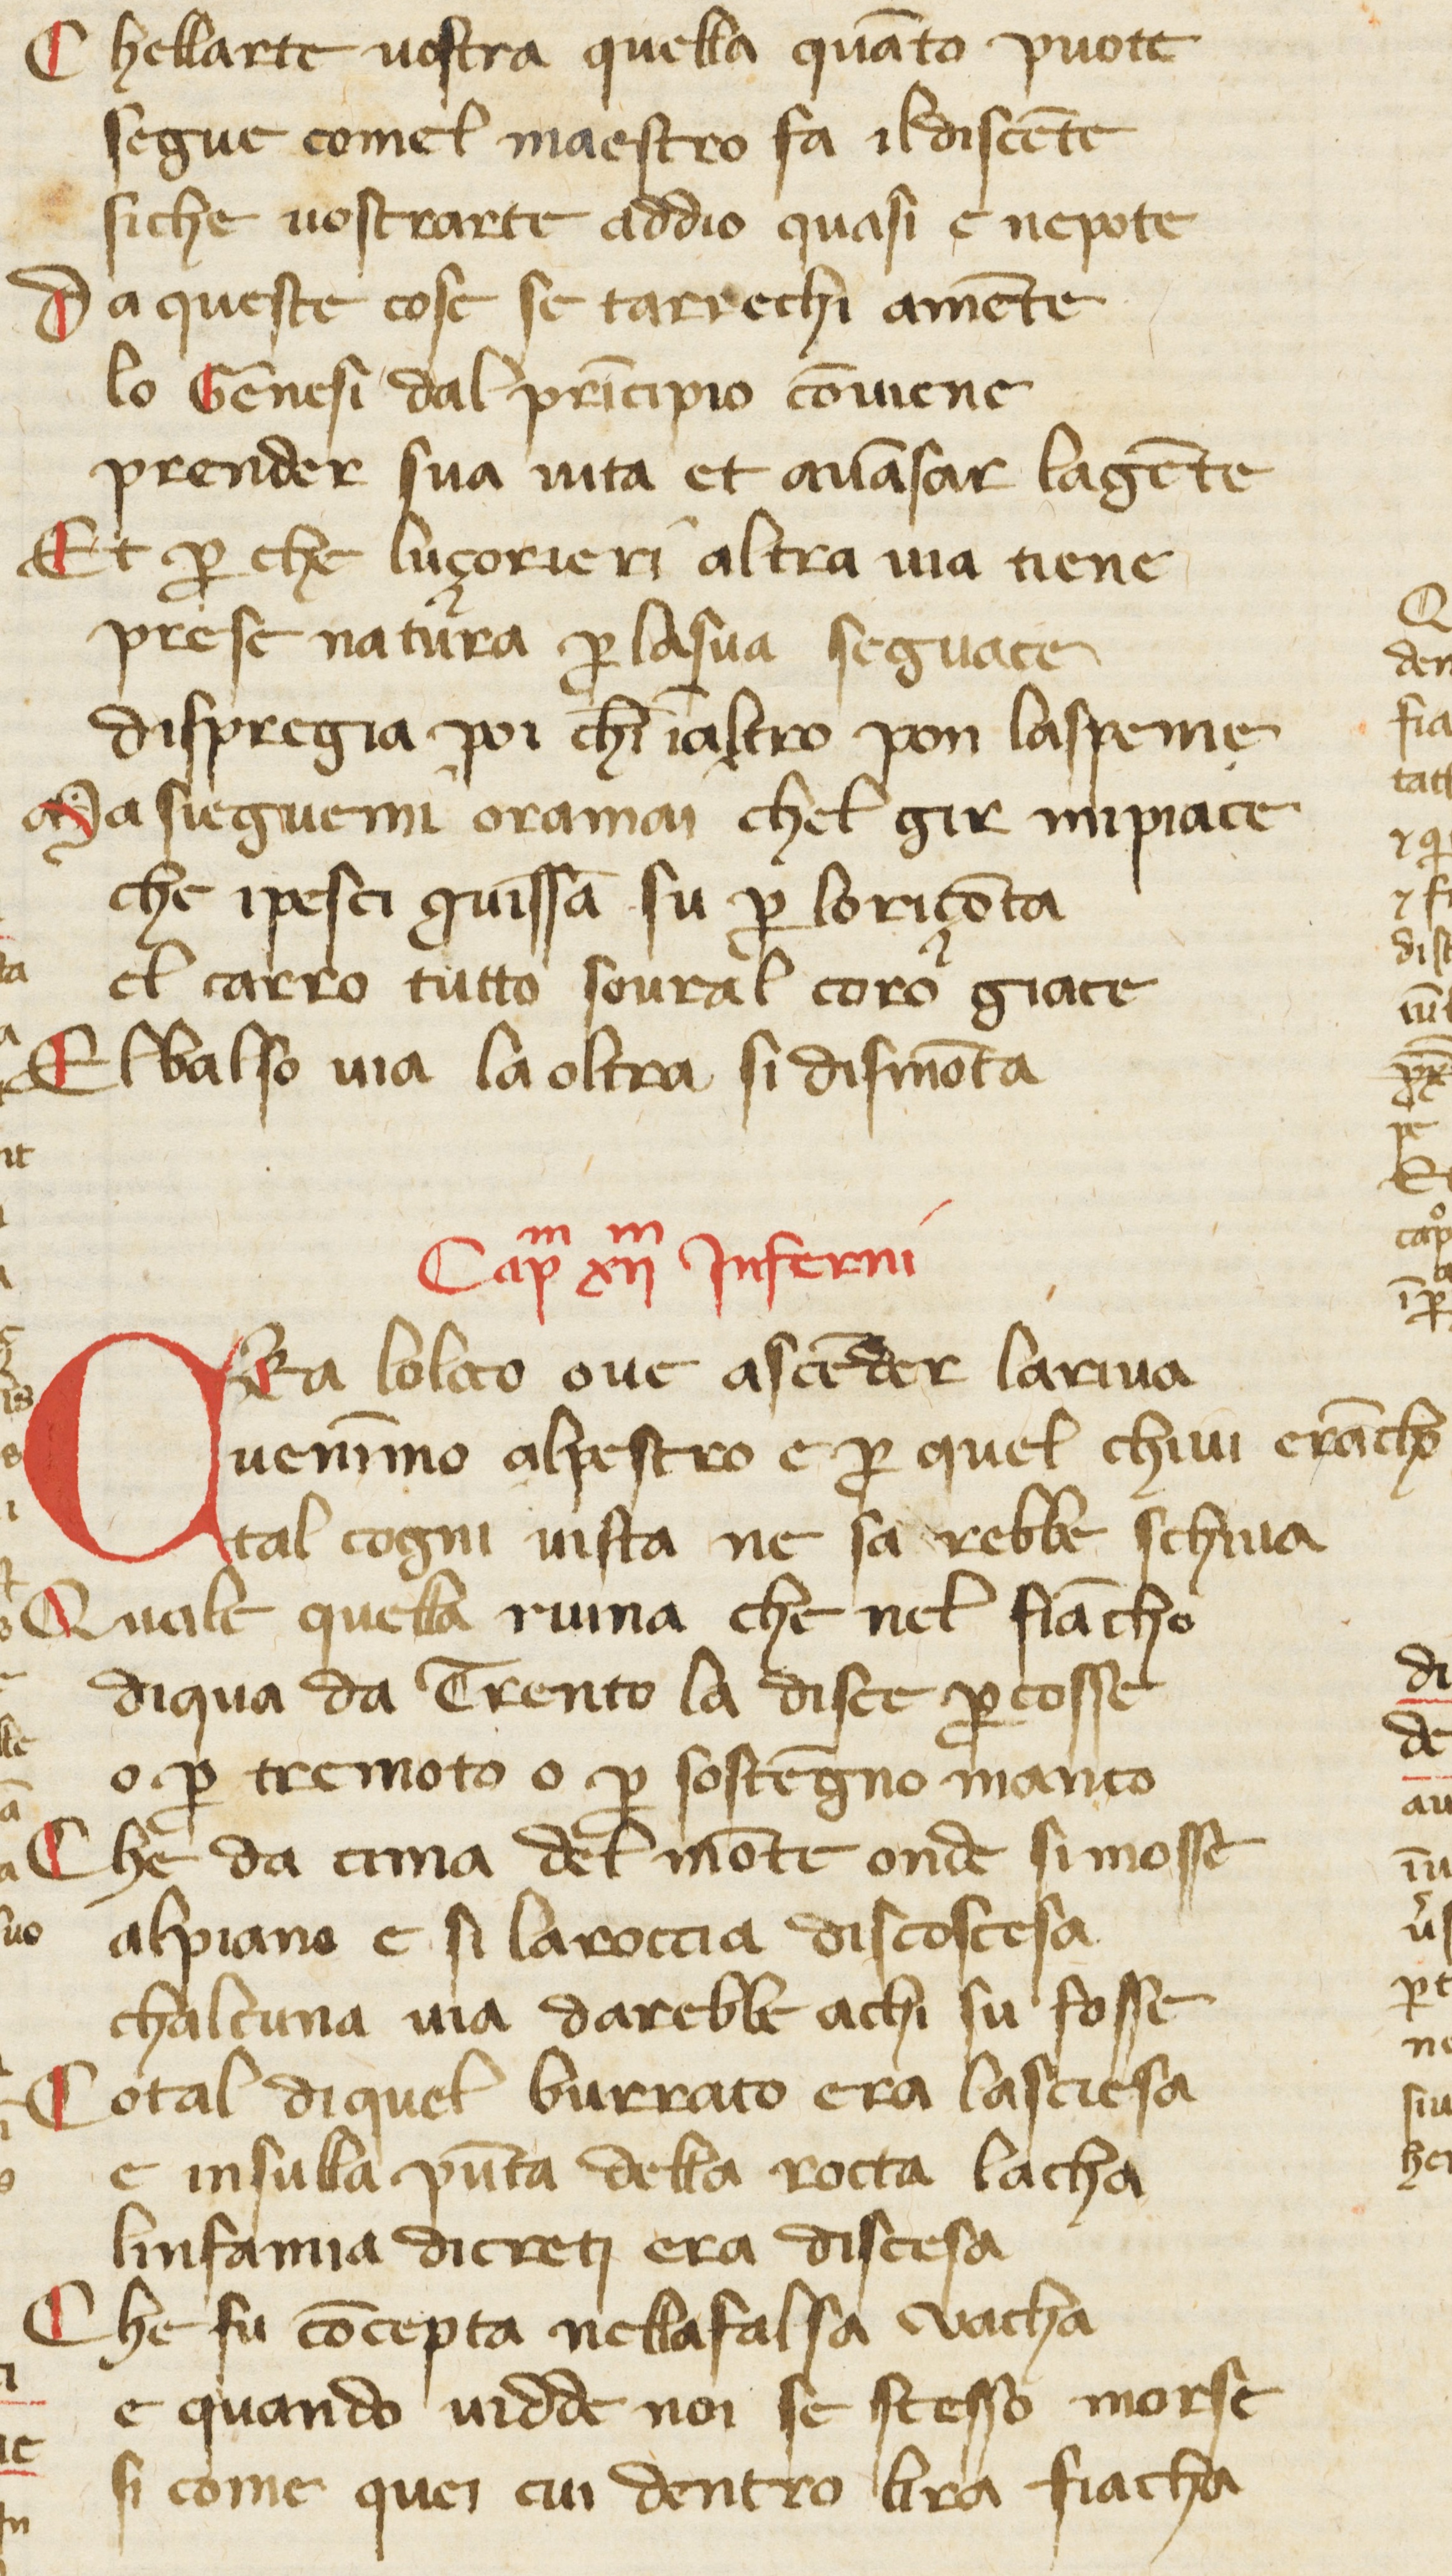 C hellarte uostra quella quāto puote
segue comel maestro fa ildiscēte
siche uostrarte addio quasi e nepote
D a queste cose se tarrechi amēte
lo Gēnesi dal prīcipio cōuiene
prender sua uita et auāsar lagēte
Et ꝑ che luçorieri altra uia tiene
prese natura ꝑ lasua seguace
dispregia poi chī ialtro pon laspeme
Ma sieguemi oramai chel gir mipiace
che ipesci guissā su ꝑ loriçōta
el carro tutto soural coro giace
El balso uia la oltra si dismōta
Capm xijm Inferni
ERa loloco oue ascēder lariua
uenīmo alpestro e ꝑ quel chiui erāchꝫ
tal cogni uista ne sa rebbe schiua
Quale quella ruina che nel fiācho
diqua da Trento la disce ꝑcosse
o ꝑ tremoto o ꝑ sostēgno manco
Che da cima del mōte onde simosse
alpiano e si laroccia discoscesa
chalcuna uia darebbe achi su fosse
Cotal diquel burrato era lasciesa
e insulla pūta della rocta lacha
linfamia dicretj era discesa
Che fu cōcepta nellafalsa vacha
e quando uidde noi se stesso morse
si come quei cui dentro lira fiacha